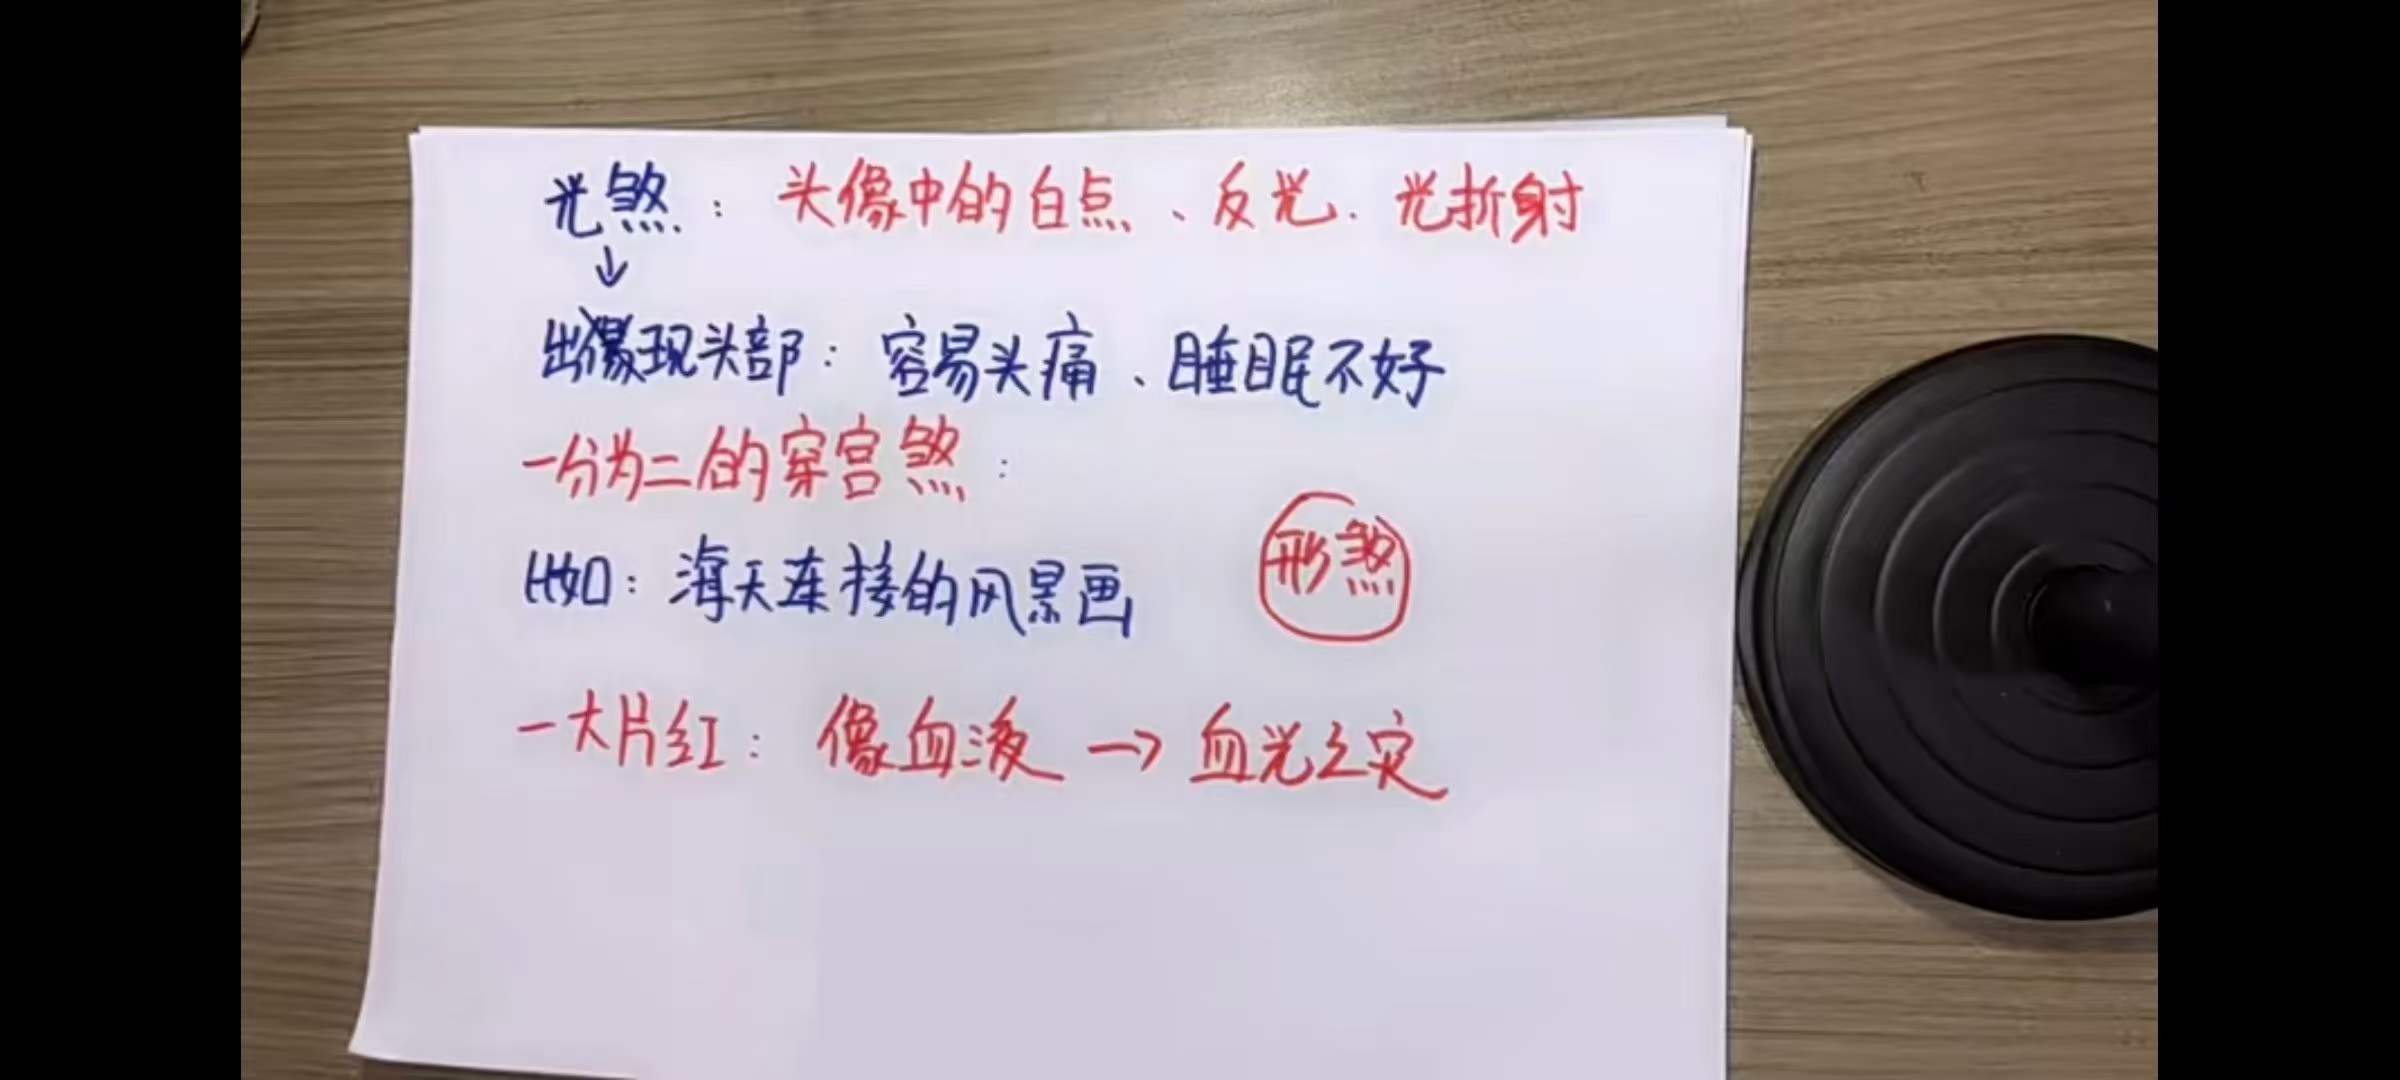 光煞：头像中的白点、反光、光折射
↓
出现头部：容易头痛、睡眠不好
一分为二的穿宫煞：
比如：海天连接的风景画
形煞
一大片红：像血液→血光之灾